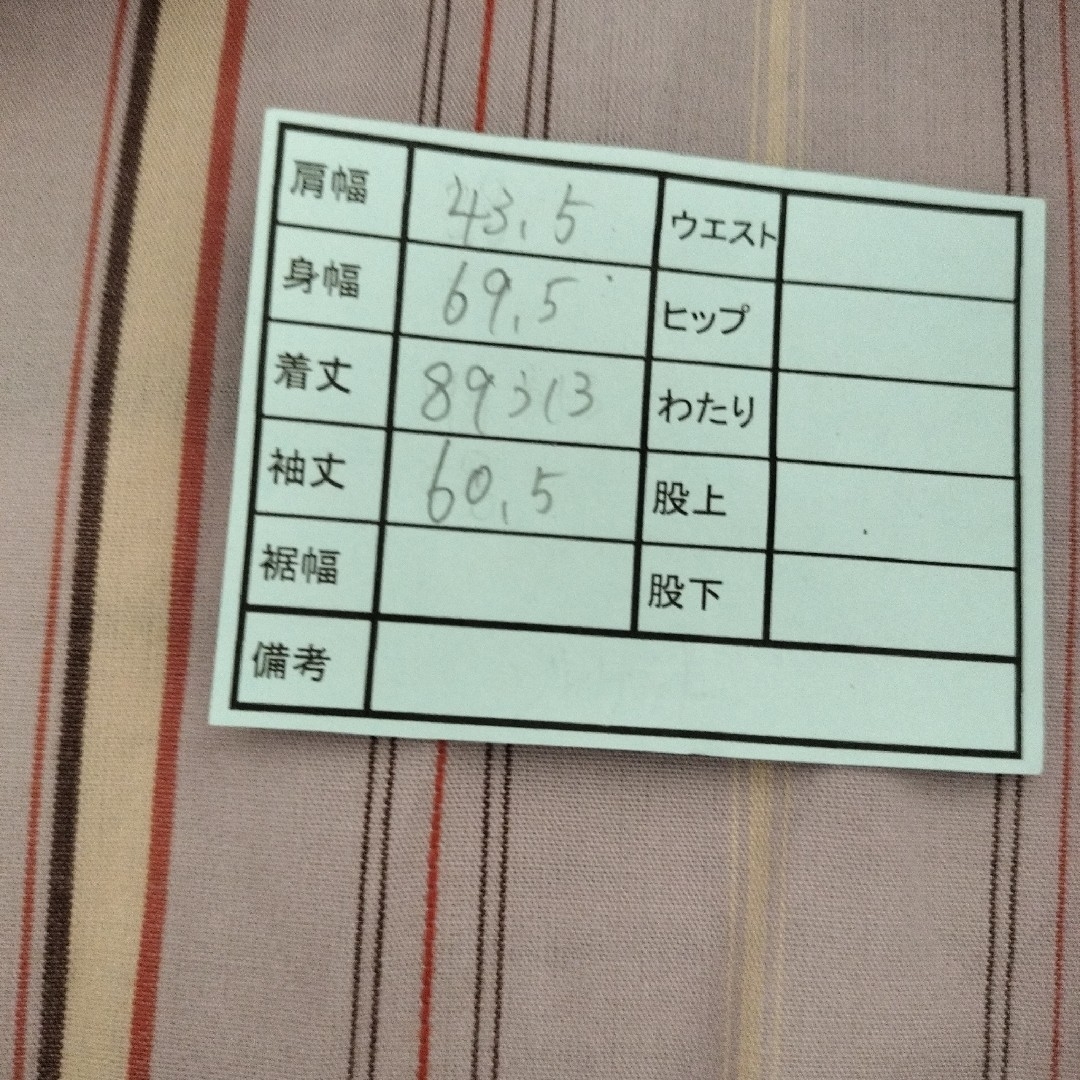 肩幅 43.5 ウエスト
身幅 69.5 ヒップ
着丈 わたり
袖丈 60.5 股上
裾幅 股下
備考